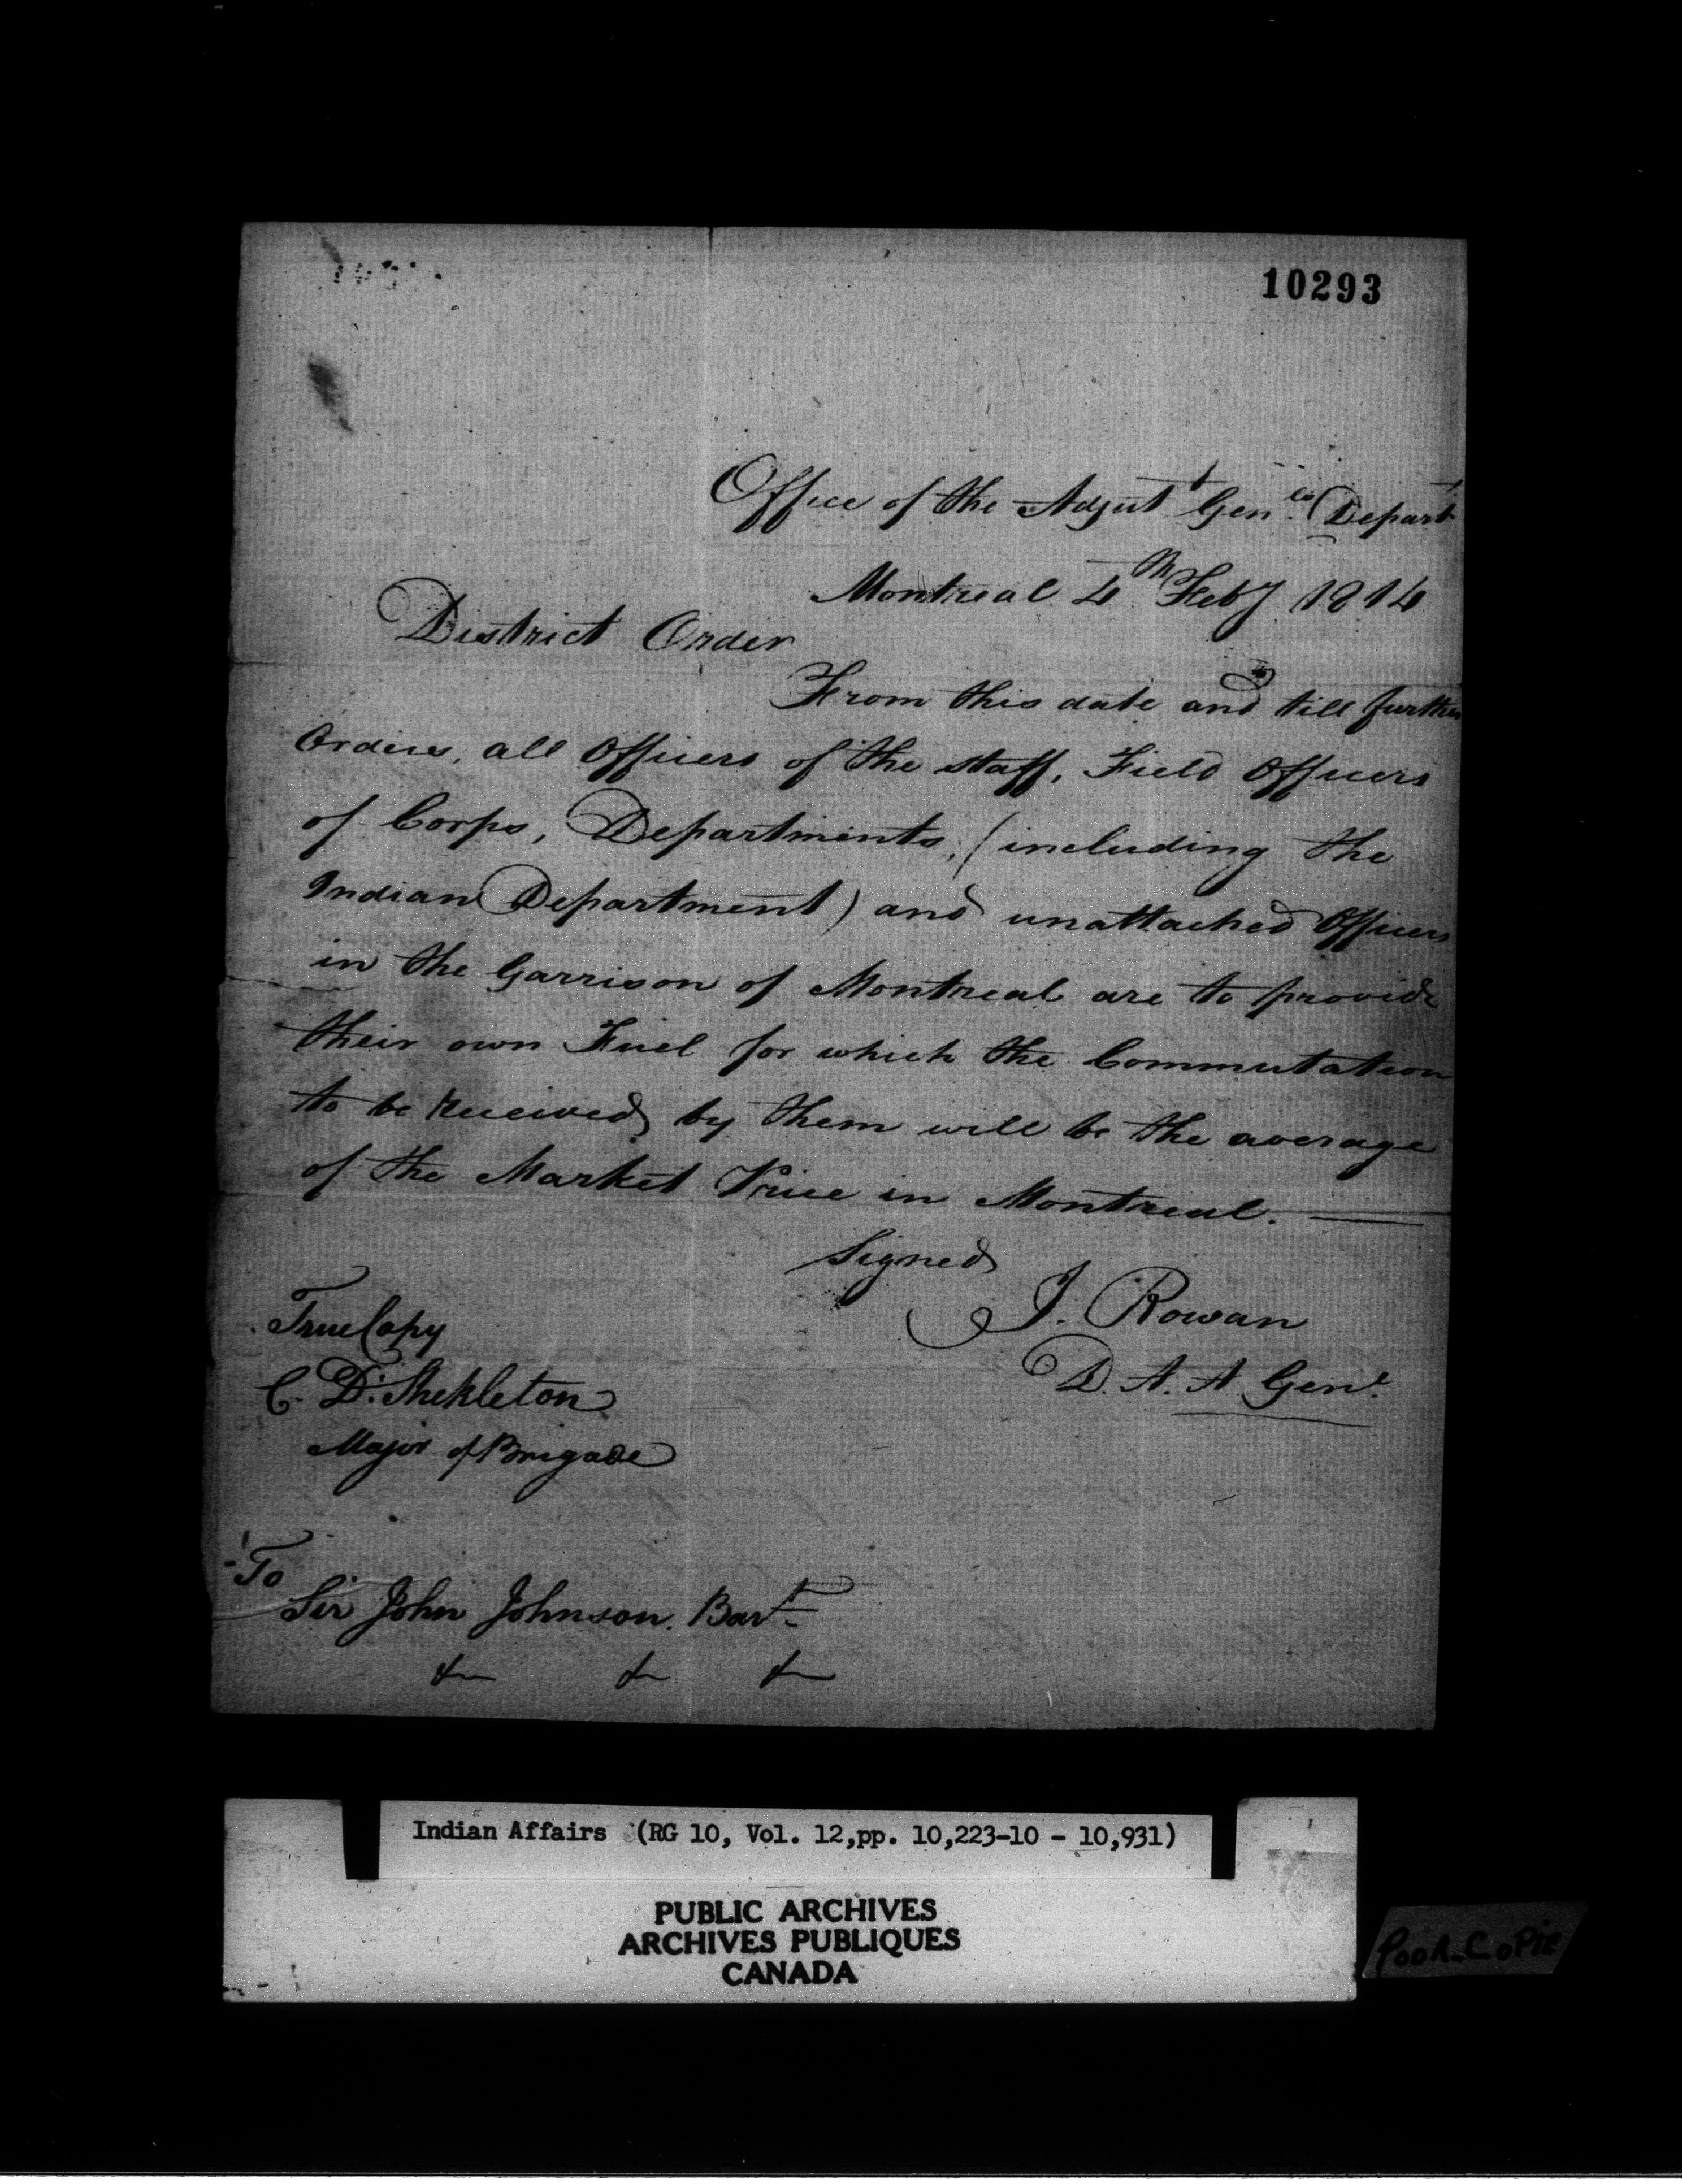 10293
Office of the Adjut Genls Depart
Montreal 4th Feby 1814
District Order
From this date and till further
Orders, all Officers of the staff, Field Officers
of Corps, Departments, (including the
Indian Department) and unattached Officers
in the Garrison of Montreal are to provide
their own Fuel for which the Commutation
to be received by them will be the average
of the Market Price in Montreal.
Signed
J. Rowan
D. A. A Genl.
True Copy
C. D. Shekleton
Major of Brigade
To
Sir John Johnson. Bart
& & &
Indian Affairs (RG 10, Vol. 12,pp. 10,223-10 - 10,931)
PUBLIC ARCHIVES
ARCHIVES PUBLIQUES
CANADA
POOR-COPIE